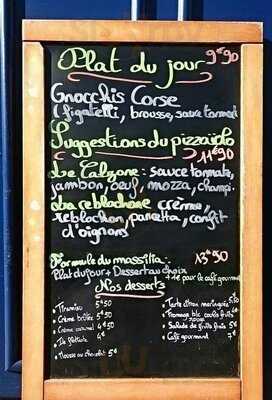 Plat du jour 9€90
Gnocchis Corse
(figatelli, brousse, sauce tomate)
Suggestions du pizzaiolo
11€90
Le Calzone : sauce tomate,
jambon, œuf, mozza, champi.
La reblochonne crème,
reblochon, pancetta, confit
d'oignons
Formule du massilia : 13€90
Plat du jour + Dessert au choix
+1€ pour le café gourmand
Nos desserts
• Tiramisu 5€50
• Crème brûlée 5€50
• Crème caramel 4€50
• Ile flottante 4€
• Mousse au chocolat 5€
• Tarte citron meringuée 5€50
• Fromage blc coulis fruits
rouges 4€
• Salade de fruits frais 5€
• Café gourmand 7€